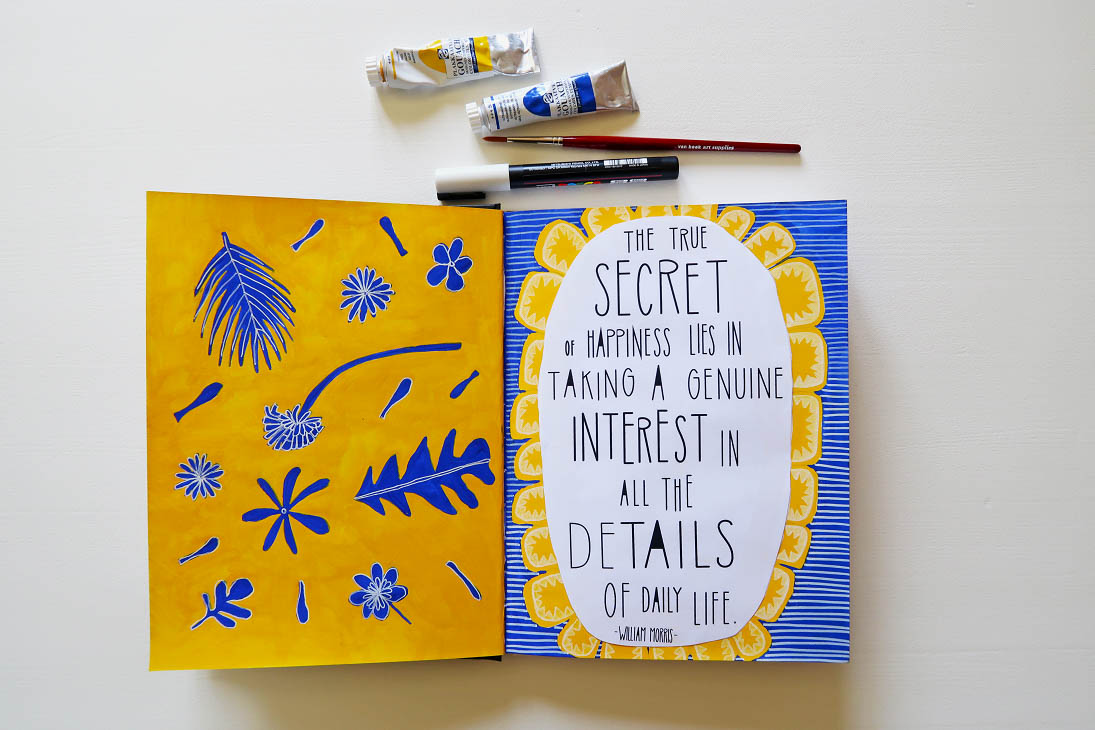 GOUACHE
GOUACHE
van beek art supplies
THE TRUE
SECRET
OF HAPPINESS LIES IN
TAKING A GENUINE
INTEREST IN
ALL THE
DETAILS
OF DAILY LIFE.
-WILLIAM MORRIS-